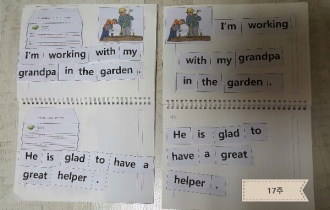 I'm working with my
grandpa in the garden .
He is glad to have a
great helper .
I'm working
with my grandpa
in the garden .
He is glad to
have a great
helper .
17주